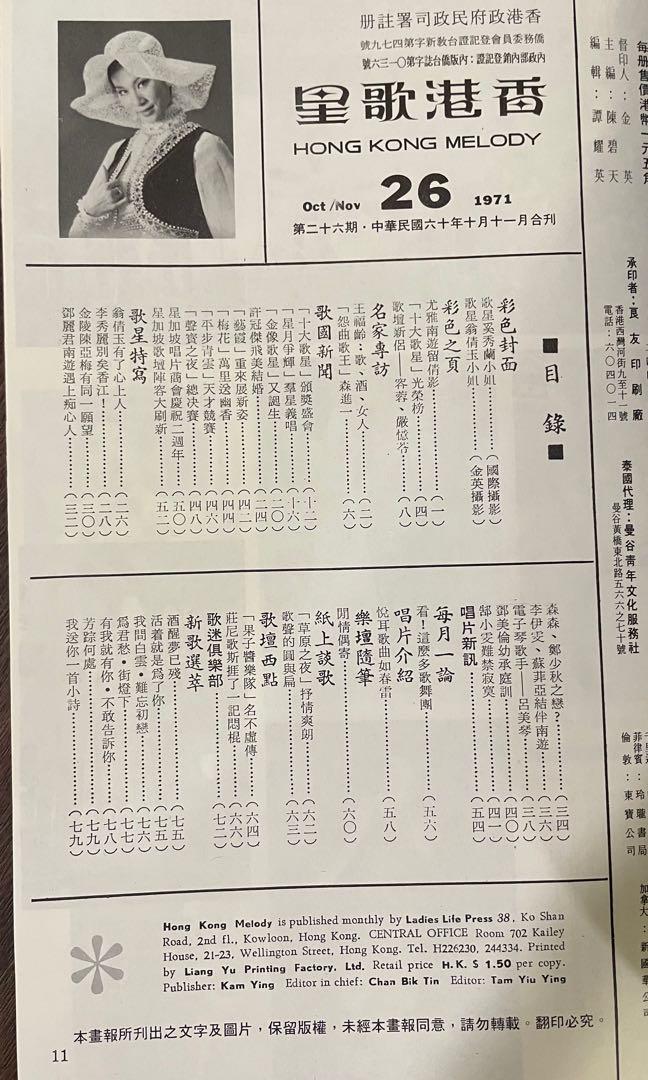 香港政府民政司署註册
僑務委員會登記證台敎新字第四七九號
內政部內銷登記證：內版僑台誌字第〇一三六號
香港歌星
HONG KONG MELODY
Oct/Nov 26 1971
第二十六期・中華民國六十年十月十一月合刊
■目錄■
彩色封面
歌星奚秀蘭小姐……（國際攝影）
歌星翁倩玉小姐……（金英攝影）
彩色之頁
尤雅南遊留倩影……（一）
「十大歌星」光榮榜……（四）
歌壇新侶——容蓉、嚴憶岺……（八）
名家專訪
王福齡：歌、酒、女人……（二）
「怨曲歌王」森進一……（六）
歌國新聞
「十大歌星」頒獎盛會……（十二）
「星月爭輝」羣星義唱……（十六）
「金像歌星」又誕生……（二〇）
許冠傑飛美結婚……（二四）
「藝霞」重來展新姿……（四二）
「梅花」萬里送幽香……（四四）
「平步靑雲」天才競賽……（四六）
「聲寶之夜」總決賽……（四八）
星加坡唱片商會慶祝二週年……（五〇）
星加坡歌壇陣容大刷新……（五二）
歌星特寫
翁倩玉有了心上人……（二六）
李秀麗別矣香江！……（二八）
金陵陳亞梅有同一願望……（三〇）
鄧麗君南遊遇上痴心人……（三二）
森森、鄭少秋之戀？……（三四）
李伊雯、蘇菲亞結伴南遊……（三六）
電子琴歌手——呂美琴……（三八）
鄧美倫幼承庭訓……（四〇）
郜小雯難禁寂寞……（四一）
唱片新訊……（五四）
每月一論
看！這麼多歌舞團……（五六）
唱片介紹
悅耳歌曲如春雷……（五八）
樂壇隨筆
閒情偶寄……（六〇）
紙上談歌
「草原之夜」抒情爽朗……（六二）
歌聲的圓與扁……（六三）
歌壇西點
「果子醬樂隊」名不虛傳……（六四）
莊尼歌斯捱了一記悶棍……（六六）
歌迷俱樂部……（七二）
新歌選萃
酒醒夢已殘……（七五）
活着就是爲了你……（七五）
我問白雲・難忘初戀……（七六）
爲君愁・街燈下……（七七）
有我就有你・不敢告訴你……（七八）
芳踪何處……（七九）
我送你一首小詩……（七九）
每册售價港幣一元五角
督印人：金英
主編：陳碧天
編輯：譚耀英
承印者：良友印刷廠
香港西灣河街九至十一號
電話：六〇四〇一四
泰國代理：曼谷靑年文化服務社
曼谷黃橋東北路五六六之七十號
菲律賓：玲瓏書局
倫敦：東寶公司
加拿大：新國華公司
Hong Kong Melody is published monthly by Ladies Life Press 38, Ko Shan
Road, 2nd fl., Kowloon, Hong Kong. CENTRAL OFFICE Room 702 Kailey
House, 21-23, Wellington Street, Hong Kong. Tel. H226230, 244334. Printed
by Liang Yu Printing Factory, Ltd. Retail price H.K. $ 1.50 per copy.
Publisher: Kam Ying Editor in chief: Chan Bik Tin Editor: Tam Yiu Ying
本畫報所刊出之文字及圖片，保留版權，未經本畫報同意，請勿轉載。翻印必究。
11